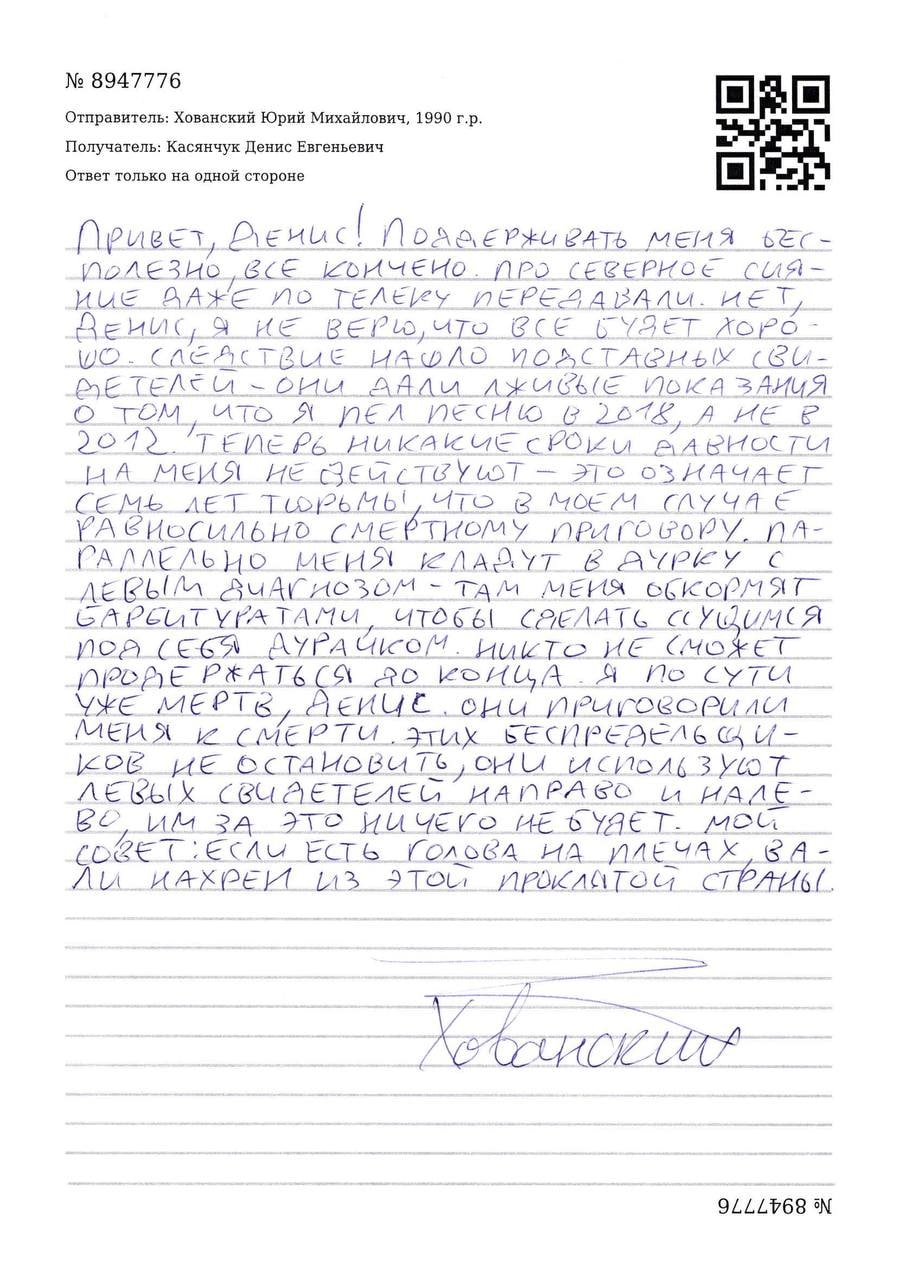 № 8947776
Отправитель: Хованский Юрий Михайлович, 1990 г.р.
Получатель: Касянчук Денис Евгеньевич
Ответ только на одной стороне
Привет, Денис! Поддерживать меня бес-
полезно, все кончено. Про северное сия-
ние даже по телеку передавали. Нет,
Денис, я не верю, что все будет хоро-
шо. Следствие нашло подставных сви-
детелей – они дали лживые показания
о том, что я пел песню в 2018, а не в
2012. Теперь никакие сроки давности
на меня не действуют – это означает
семь лет тюрьмы, что в моем случае
равносильно смертному приговору. Па-
раллельно меня кладут в дурку с
левым диагнозом – там меня обкормят
барбитуратами, чтобы сделать ссущимся
под себя дурачком. Никто не сможет
продержаться до конца. Я по сути
уже мертв, Денис. Они приговорили
меня к смерти. Этих беспредельщи-
ков не остановить, они используют
левых свидетелей направо и нале-
во, им за это ничего не будет. Мой
совет: если есть голова на плечах, ва-
ли нахрен из этой проклятой страны.
Хованский
№ 8947776